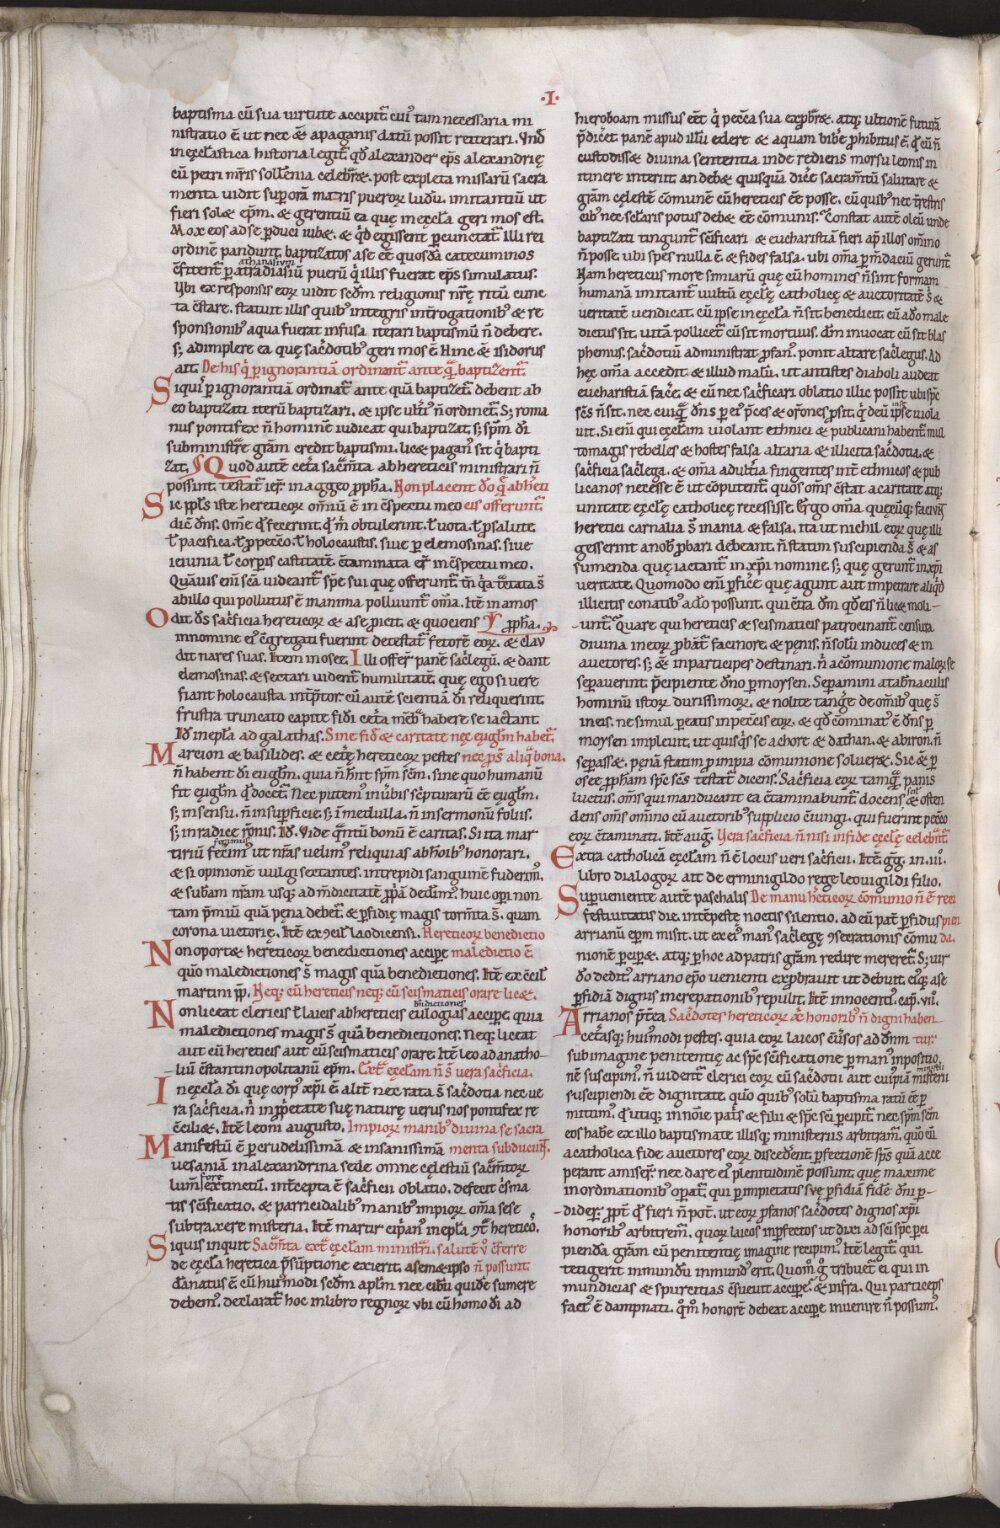 ·I·
baptisma cū sua uirtute accipit̄ cui᷒ tam necessaria mi
nistratio ē ut nec & apaganis datū possit reiterari. Vnđ
in eccl̄astica historia legit̄ qđ alexander ep̄s alexandrię
cū petri mr̄is sollēnia celebr&. post expleta missarū sacra
menta uidit supora maris pueroꝝ ludū. imitantiū ut
fieri sol& ep̄m. & gerentiū ea que in eccl̄a geri mos est.
Mox eos ad se ꝑduci iub&. & qđ egissent ꝑcunctat̄. Illi rei
ordinē pandunt. baptizatos a se eē quosdā catecuminos
ēfitent̄ ꝑ athanasium puerū q̄ illis fuerat ep̄s simulatus.
Vbi ex responsis eoꝝ uidit scđm religionis nr̄ę ritū cunc
ta ēstare. statuit illis quib᷒ integris int̄rogationib᷒ & re
sponsionib᷒ aqua fuerat infusa iterari baptismū ñ debere.
s; adimplere ea quę sac̄dotib᷒ geri mos ē Hinc & isidorus
ait. De his q̄ ꝑ ignorantiā ordinant̄ ante q̄ā baptizent̄.
Siquis ꝑ ignorantiā ordinat̄ ante quā baptizet̄. debent ab
eo baptizati iterū baptizari. & ipse ult̄i᷒ ñ ordinet̄. S; roma
nus pontifex ñ hominē iudicat qui baptizat. s; sp̄m dī
subministr̄re gr̄am credit baptismi. lic& pagan᷒ sit q̄ bapti
zat. Quod autē cet̄a sac̄mta ab hereticis ministrari ñ
possint. testat̄ ier̄ in aggeo ꝓph̄a. Non placent dō q̄ ab heti
Sic ppl̄s iste hereticoꝝ omniū ē in ēspectu meo cis offerunt̄.
dic̄ dn̄s. Om̄e q̄ fecerint. q̄ m̄ obtulerint. ł uota. ł ꝓ salute.
ł pacifica. ł ꝓ pec̄co. ł holocaustis. siue ꝑ elemosinas. siue
ieiunia ł corꝑis castitatē. ētaminata er̄ in ēspectu meo.
Quāuis eni᷒ scā uideant̄ spe sui que offerunt̄. tn̄ q̄a t̄tata s̄
ab illo qui pollutus ē in anima polluunt̄ om̄a. Itē in amos
Odit dš sac̄ficia hereticoꝝ & a se ꝓicit. & quociens ꝓph̄a.
in nomine ei᷒ ēgregati fuerint detestat̄ fetorē eoꝝ. & clau
dit nares suas. Item in osee. Illi offer̄ panē sac̄legū. & dant
elemosinas. & sectari uident̄ humilitatē. quę ego si uere
fiant holocausta int̄p̄tor. cū autē scientiā dī reliquerint.
frustra truncato capite fidī cet̄a mēb᷒ habere se iactant
Iđ in epl̄a ad galathas. Sine fiđ & caritate nec eugl̄m habet̄.
Marcion & basilides. & cet̄ę hereticoꝝ pestes nec pōs̄ aliq̄ bona.
ñ habent dī eugl̄m. quia ñ hn̄t sp̄m scm̄. sine quo humanū
fit eugl̄m q̄ docet̄. Nec putem᷒ in ūbis sc̄pturarū eē eugl̄m.
s; in sensu. ñ in sup̄ficie. s; ī medulla. ñ in sermonū foliis.
s; in radice r̄onis. Iđ. Vide q̄ntū bonū ē caritas. Si ita mar
tiriū fecerim᷒ ut nr̄as uelim᷒ reliquias ab hōib᷒ honorari.
& si opinionē uulgi sectantes. intrepidi sanguinē fuderim᷒.
& subam nr̄am usq; ad m̄dicitatē ꝓpā dedim᷒. huic oꝑi non
tam p̄miū quā pęna debet̄. & ꝑfidię magis torm̄ta s̄. quam
corona uictorię. Itē ex ꝯcil̄ laodicensi. Hereticoꝝ benedictio
Non oport& hereticoꝝ benedictiones accipe maledictio ē.
quō maledictiones s̄ magis quā benedictiones. Itē ex ꝯcil̄
martini pp̄. Neq; cū hereticis neq; cū scismaticis orare lic&.
Non liceat clericis ł laicis ab hereticis eulogias accipe. quia
maledictiones magis s̄ quā benedictiones. Neq; liceat
aut cū hereticis aut cū scismaticis orare. Itē leo ad anatho-
liū ēstantinopolitanū ep̄m. Ext̄ eccl̄am ñ s̄ uera sac̄ficia.
In eccl̄a dī quę corp᷒ xp̄i ē alit̄ nec rata s̄ sac̄dotia nec ue
ra sac̄ficia. ñ in ꝓp̄etate suę naturę uerus nos pontifex re
ēciliet. Itē leoni augusto. Impioꝝ manib᷒ diuina se sacra
Manifestū ē ꝑ crudelissimā & insanissimā menta subducunt̄.
uesaniā in alexandrina sede omne cęlestiū sac̄mtoꝝ
lum̄ extinctū. int̄cepta ē sac̄ficii oblatio. defecit c̄sma
tis sc̄ificatio. & parricidalib᷒ manib᷒ impioꝝ om̄a sese
subtraxere misteria. Itē martir cip̄an᷒ in epl̄a ꝯt̄ hereticos̄.
Siquis inquit Sac̄mta ext̄ eccl̄am ministr̄i. salutē ū ꝯferre
de eccl̄a heretica p̄suptione exierit. a semetipso ñ possunt.
dānatus ē cū hui᷒modi scđm apl̄m nec cibū quidē sumere
debem᷒. declarat̄ hoc in libro regnoꝝ ubi cū homo dī ad
hieroboam missus eēt q̄ pec̄ca sua exꝓbr&. atq; ultionē futurā
p̄dicet. panē apud illū edere & aquam bibe ꝓhibitus ē. q̄ cū ñ
custodisse diuina sententia inde rediens morsu leonis in
itinere interiit. an deb& quisquā dic̄e sacramtū salutare &
gr̄am cęlestē comunē cū hereticis eē posse. cū quib᷒ nec t̄restris
cib᷒ nec sc̄laris potus deb& eē cōmunis. Constat autē oleū unde
baptizati tingunt̄ sc̄ificari & eucharistiā fieri ap̄ illos om̄ino
ñ posse. ubi spes nulla ē & fides falsa. ubi om̄a ꝑ m̄daciū gerunt̄.
Nam hereticus more simiarū quę cū homines ñ sint formam
humanā imitant̄ uultū eccl̄ę catholicę & auctoritatē s; &
ueritatē uendicat. cū ipse in eccl̄a ñ sit benedicit cū a dō male
dictus sit. uitā pollicet̄ cū sit mortuus. dm̄ inuocat cū sit blas
phemus. sac̄dotiū administrat ꝓfan᷒. ponit altare sac̄legus. Ad
hęc om̄a accedit & illud malū. ut antistes diaboli audeat
eucharistiā fac̄e. & cū nec sac̄ficari oblatio illic possit ubi sp̄c
scs̄ ñ sit. nec cuiq̄ dn̄s ꝑ ei᷒ p̄ces & or̄ones ꝓsit. q̄ deū ipse uiola
uit. Si eni᷒ qui eccl̄am uiolant ethnici & publicani habent̄. mul
tomagis rebelles & hostes falsa altaria & illicita sac̄dotia. &
sac̄ficia sac̄lega. & om̄a adult̄ia fingentes int̄ ethnicos & pub
licanos necesse ē ut cōputent̄. quos om̄s ēstat a caritate atq;
unitate eccl̄ę catholicę recessisse. Ergo om̄a quęcūq; faciūt
heretici carnalia s̄ inania & falsa. ita ut nichil eoꝝ quę illi
gesserint a nob᷒ ꝓbari debeant. ñ statim suscipienda s̄ & as
sumenda quę iactant̄ in xp̄i nomine. s; quę gerunt̄ in xp̄i
ueritate. Quomodo eni᷒ ꝑfic̄e quę agunt aut impetrare aliqđ
illicitis conatib᷒ a dō possunt. qui ēt̄a dm̄ qđ eis ñ lic& moli-
-unt̄. Quare qui hereticis & scismaticis patrocinant̄ censura
diuina in eoꝝ ꝓbat̄ facinore. & pęnis. ñ solū induces & in
auctores. s; & in participes destinari. ñ a cōmunione maloꝝ se
separauerint. p̄cipiente dn̄o ꝑ moysen. Separamini a tab̄naculis
hominū istoꝝ durissimoꝝ. & nolite tange de om̄ib᷒ quę s̄
in eis. ne simul ꝑeatis in pec̄cis eoꝝ. & qđ cominat᷒ ē dn̄s ꝑ
moysen impleuit. ut quisq̄s se a chore & dathan. & abiron. ñ
sepass&. pęnā statim ꝑ impia cōmunione soluer&. Sic & ꝑ
osee ꝓph̄am sp̄c scs̄ testat̄ dicens. Sac̄ficia eoꝝ tamq̄ panis
luctus. om̄s qui manducant ea ētaminabunt̄. docens & osten
dens om̄s om̄ino cū auctorib᷒ supplicio ēiungi. qui fuerint pec̄co
eoꝝ ētaminati. Itē auḡ. Vera sac̄ficia ñ nisi in fide eccl̄ę celebn̄t̄.
Extra catholicā eccl̄am ñ ē locus ueri sac̄ficii. Itē g̅g̅. in .iii.
libro dialogoꝝ ait de erminigildo rege leouigildi filio.
Superueniente autē paschalis De manu heticoꝝ cōmunio ñ ē reci
festiuitatis die. intēpestę noctis silentio. ad eū pat̄ ꝑfidus pien
arrianū ep̄m misit. ut ex ei᷒ man᷒ sac̄legę ꝯsecrationis cōmu da.
nionē ꝑcip&. atq; ꝑ hoc ad patris gr̄am redire mereret̄. S; uir
dō dedit᷒. arriano ep̄o uenienti exꝓbrauit ut debuit. ei᷒q; a se
ꝑfidiā dignis increpationib᷒ repulit. Itē innocenti᷒. cap̄. vii.
Arrianos p̄t̄ea Sac̄dotes hereticoꝝ & honorib᷒ ñ digni haben
cet̄asq; hui᷒modi pestes. quia eoꝝ laicos cūsos ad dn̄m tur.
sub imagine penitentię ac sp̄c sc̄ificatione ꝑ man᷒ impositio
nē suscipim᷒. ñ uident̄ clerici eoꝝ cū sac̄dotii aut cui᷒piā misterii
suscipiendi eē dignitate. quō quib᷒ solū baptisma ratū eē ꝑ
mittim᷒. q̄ utiq; in nōie patis̄ & filii & sp̄c sc̄i ꝑcipit̄. nec sp̄m scm̄
eos habe ex illo baptismate illisq; ministeriis arbitram᷒. quō cū
a catholica fide auctores eoꝝ disceđent. ꝑfectionē sp̄s quā acce
perant amiser̄. nec dare ei᷒ plenitudinē possunt. quę maxime
in ordinationib᷒ oꝑat̄. qui ꝑ impietatis suę ꝑfidiā fidē dn̄i ꝑ-
-dider̄. ꝓpt̄ q̄ fieri ñ pot̄. ut eoꝝ ꝓfanos sac̄dotes dignos xp̄i
honorib᷒ arbitrem᷒. quoꝝ laicos inꝑfectos ut dixi ad sc̄i sp̄c ꝑci
pienda gr̄am cū penitentię imagine recipim᷒. Itē legit̄. qui
tetigerit inmundū inmund᷒ erit. Quom̄ g̊ tribuet ei qui in
mundicias & spurcitias ēsueuit accipe. & infra. Qui particeps
fact᷒ ē dampnati. q̄m̄ honorē debeat accipe inuenire ñ possum᷒.